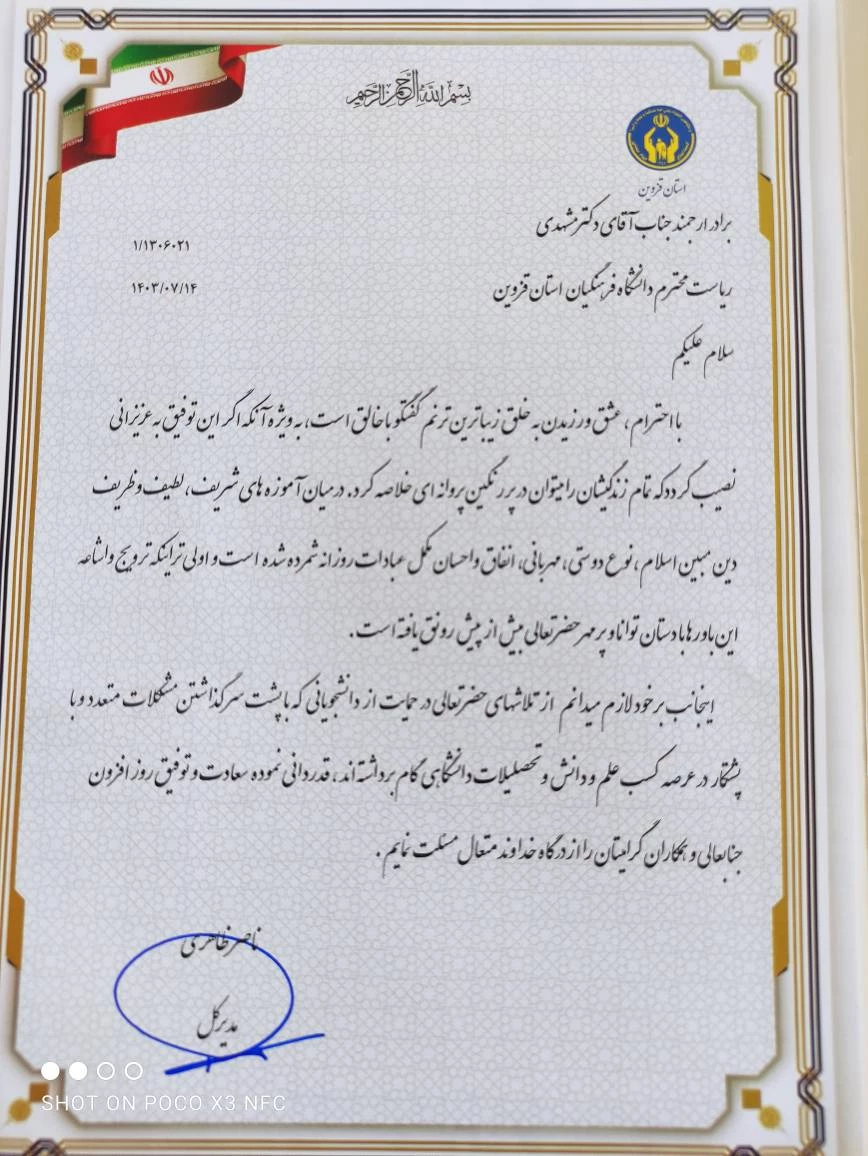 بسم الله الرحمن الرحیم
استان قزوین
برادر ارجمند جناب آقای دکتر مشهدی
۱/۱۳۰۶۰۲۱
ریاست محترم دانشگاه فرهنگیان استان قزوین
۱۴۰۳/۰۷/۱۴
سلام علیکم
با احترام، عشق ورزیدن به خلق زیباترین ترنم گفتگو با خالق است، به ویژه آنکه اگر این توفیق به عزیزانی
نصیب گردد که تمام زندگیشان را میتوان در پر رنگین پروانه ای خلاصه کرد. در میان آموزه های شریف، لطیف و ظریف
دین مبین اسلام، نوع دوستی، مهربانی، انفاق و احسان مکمل عبادات روزانه شمرده شده است و اولی تر اینکه ترویج و اشاعه
این باورها با دستان توانا و پر مهر حضرتعالی بیش از پیش رونق یافته است.
اینجانب بر خود لازم میدانم از تلاشهای حضرتعالی در حمایت از دانشجویانی که با پشت سر گذاشتن مشکلات متعدد و با
پشتکار در عرصه کسب علم و دانش و تحصلیلات دانشگاهی گام برداشته اند، قدردانی نموده سعادت و توفیق روز افزون
جنابعالی و همکاران گرامیتان را از درگاه خداوند متعال مسئلت نمایم.
ناصر ظاهری
مدیر کل
SHOT ON POCO X3 NFC